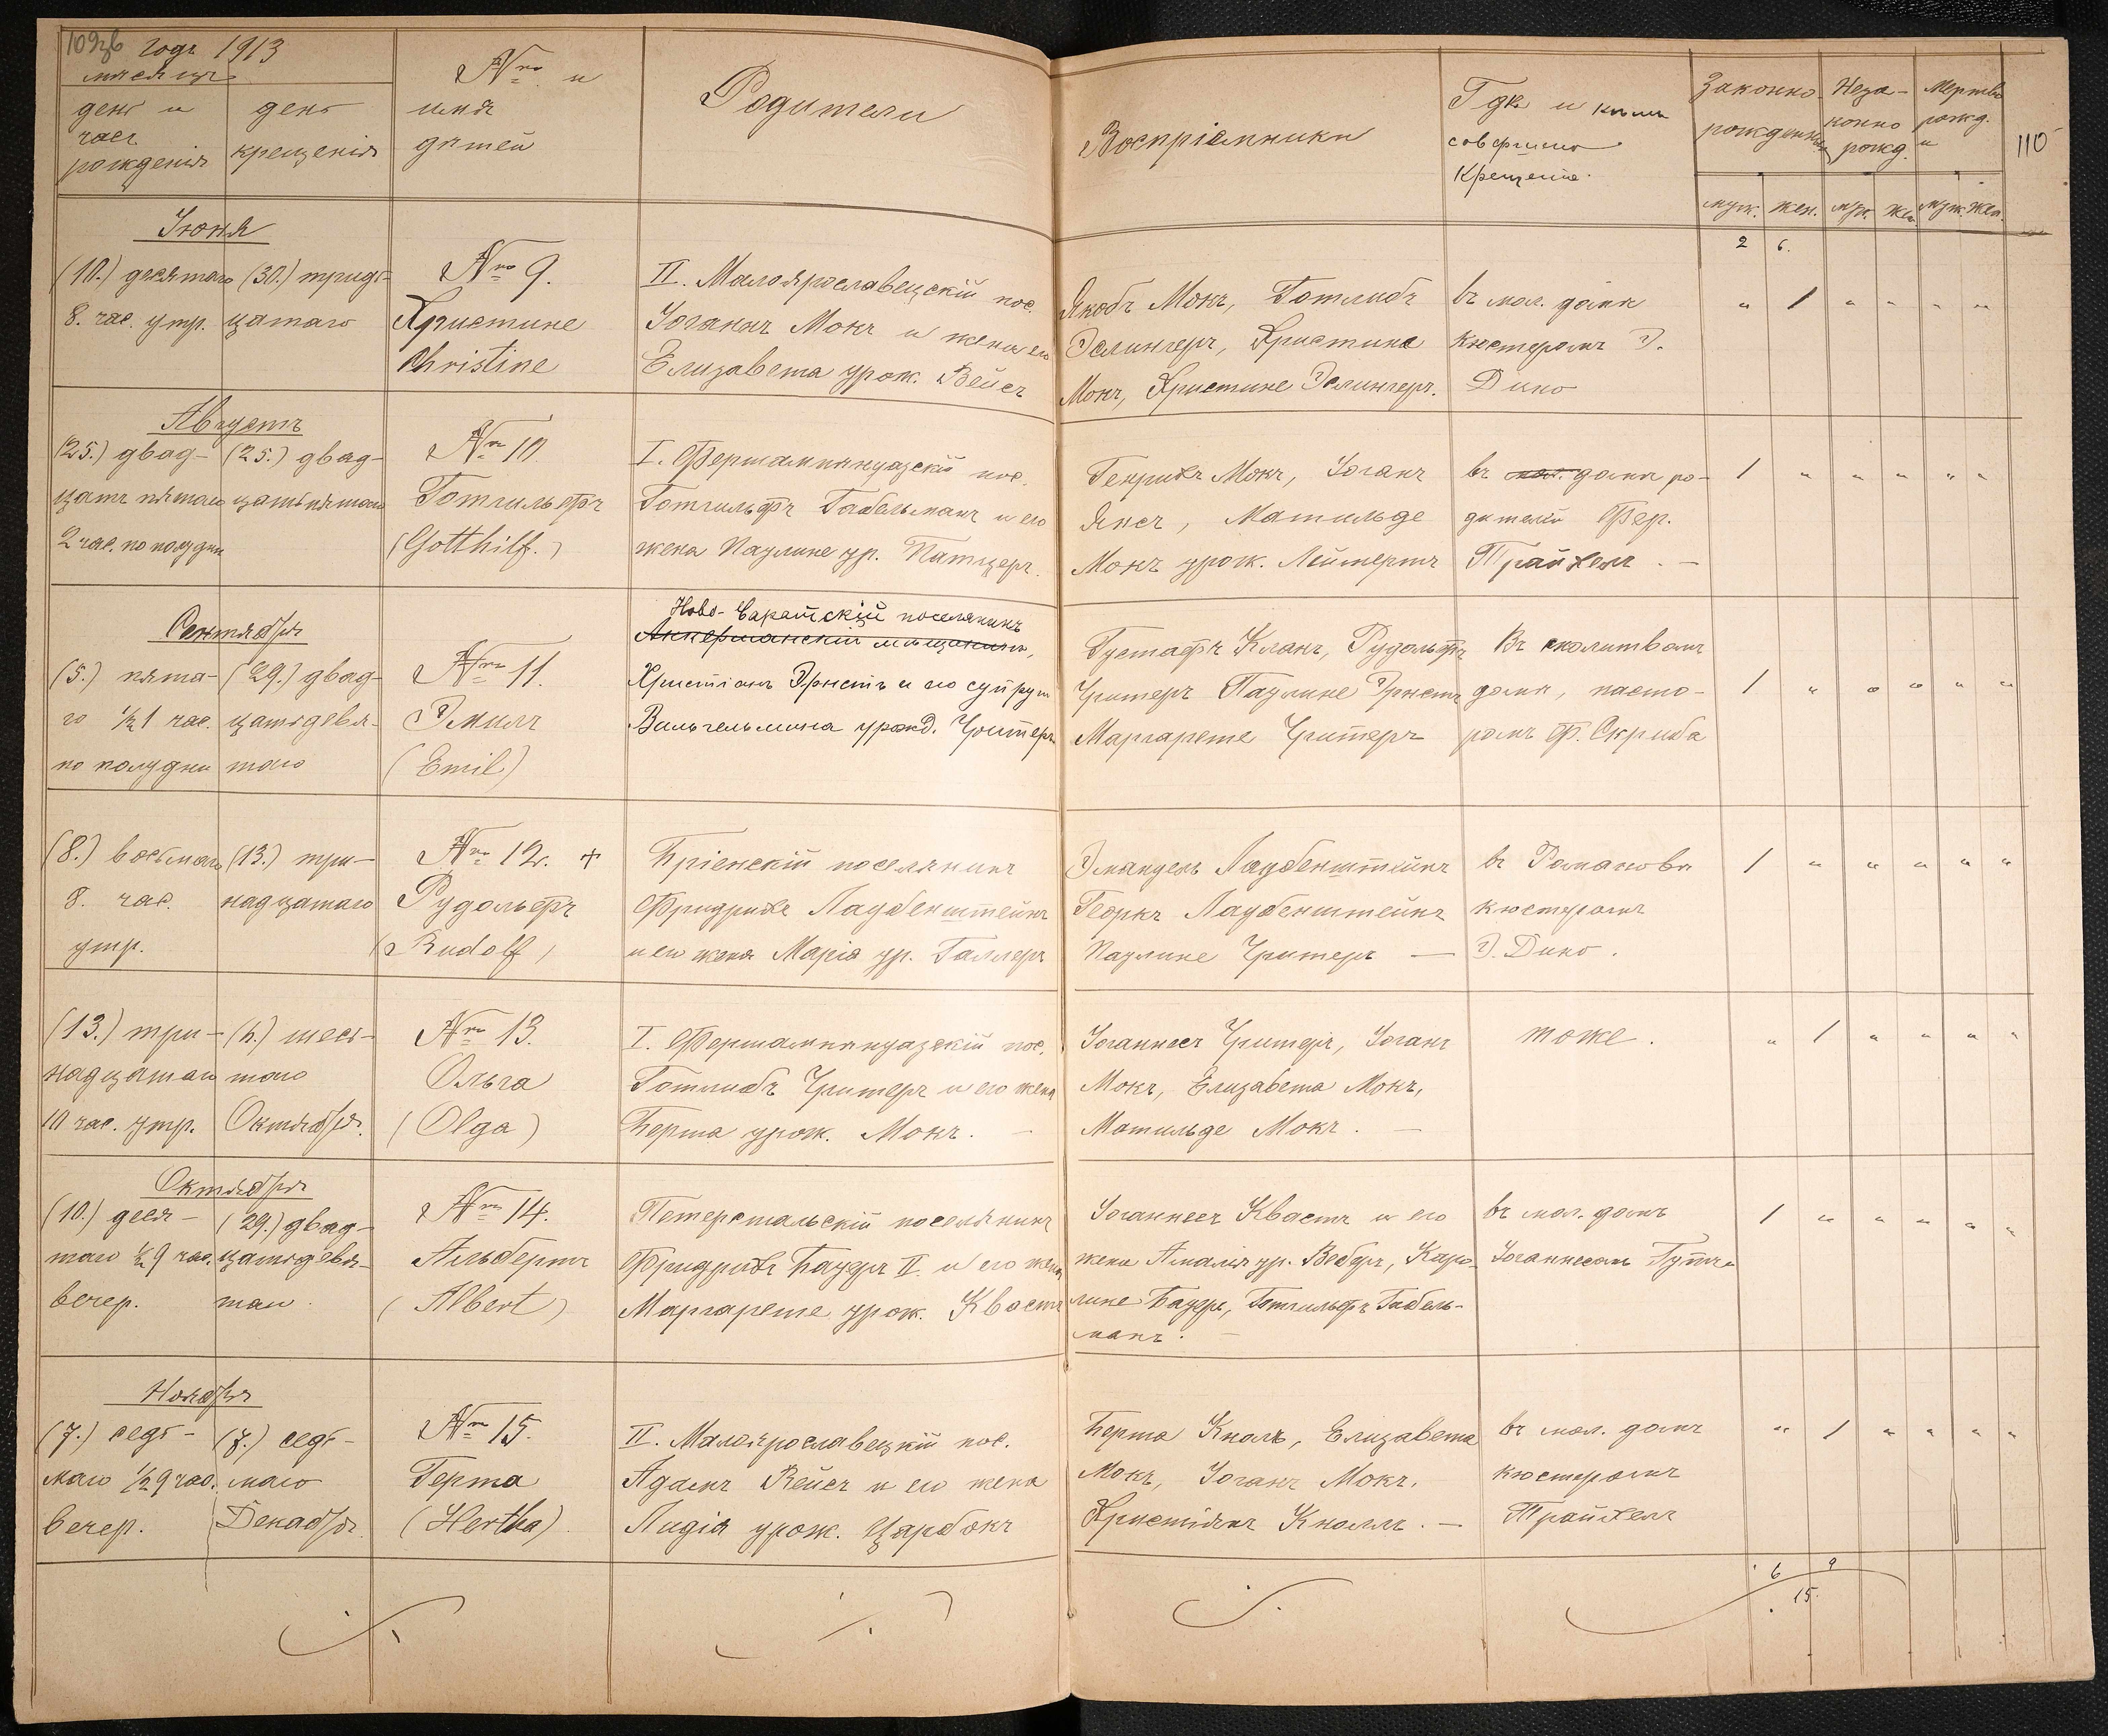 109зб годъ 1913
мѣсяцъ
день и
час
рожденія
день
крещенія
Nro и
имя
дѣтей
Родители
Воспріемники
Гдѣ и кѣмъ
совершено
Крещеніе.
Законно-
рожденные
Неза-
конно
рожд.
Мертво
рожд.
и
110
муж. жен. муж. жен. муж. жен.
2 6.
Іюня
(10.) десятаго
8. час. утр.
(30.) тридь-
цатаго
Nro 9.
Христине
Christine
II. Малоярославецскій пос.
Іоганнъ Мокъ и жена его
Елизавета урож. Вейсъ
Якобъ Мокъ, Готлибъ
Эслингеръ, Христина
Мокъ, Христине Эслингеръ.
въ мол. домѣ
кюстеромъ Э.
Дико
" 1 " " " "
Августъ
(25.) двад-
цать пятаго
2 час. по полудни
(25.) двад-
цать пятаго
Nro 10
Готгильфъ
(Gotthilf.)
I. Фершампенуазскій пос.
Готгильфъ Габельманъ и его
жена Паулине ур. Патцеръ.
Генрихъ Мокъ, Іоганъ
Янсъ, Матильде
Мокъ урож. Леймертъ
въ мол. домѣ ро-
дителей Фер.
Трайхелъ. —
1 " " " " "
Сентября
(5.) пята-
го ½1 час.
по полудни
(29.) двад-
цатьдевя-
таго
Nro 11.
Эмиль
(Emil)
Ново-Царатскій поселянинъ
Аккерманскій мѣщанинъ,
Христіанъ Эрнстъ и его супруга
Вильгельмина урожд. Чритеръ
Густафъ Кланъ, Рудольфъ
Чритеръ Паулине Эрнстъ
Маргарете Чритеръ
Въ молитвомъ
домѣ, пасто-
ромъ Ф. Скриба
1 " " " " "
(8.) восьмаго
8. час.
утр.
(13.) три-
надцатаго
Nro 12. +
Рудольфъ
(Rudolf)
Бріенскій поселянинъ
Фридрихъ Лаубенштейнъ
и его жена Марія ур. Галлеръ
Эмануель Лаубенштейнъ
Георкъ Лаубенштейнъ
Паулине Чритеръ —
въ Романовѣ
кюстеромъ
Э. Дико.
1 " " " " "
(13.) три-
надцатаго
10 час. утр.
(6.) шес-
таго
Октября.
Nro 13.
Ольга
(Olga)
I. Фершампенуазскій пос.
Готлибъ Чритеръ и его жена
Берта урож. Мокъ. —
Іоганнесъ Чритеръ, Іоганъ
Мокъ, Елизавета Мокъ,
Матильде Мокъ. —
тоже.
" 1 " " " "
Октября
(10.) деся-
таго ½9 час.
вечер.
(29.) двад-
цатьдевя-
таго
Nro 14.
Альбертъ
(Albert)
Петерстальскій поселянинъ
Фридрихъ Бауеръ II. и его жена
Маргарете урож. Квастъ
Іоганнесъ Квастъ и его
жена Амалія ур. Веберъ, Каро-
лине Бауеръ, Готгильфъ Габель-
манъ. —
въ мол. домъ
Іоганнесомъ
1 " " " " "
Ноября
(7.) седь-
маго ½9 час.
вечер.
(7.) седь-
маго
Декабря.
Nro 15.
Герта
(Hertha)
II. Малоярославецкій пос.
Адамъ Вейсъ и его жена
Лидія урож. Царбокъ
Берта Кнолъ, Елизавета
Мокъ, Іоганъ Мокъ.
Христіянъ Кноллъ. —
въ мол. домъ
кюстеромъ
Трайхелъ
" 1 " " " "
6 9
15.